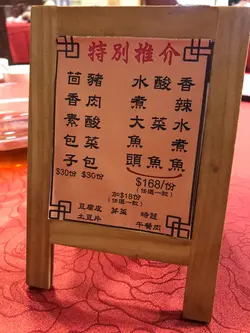 特別推介
香辣水煮魚
酸菜魚
水煮大魚頭
$168/份
(任選一款)
豬肉酸菜包
$30份
茴香素包子
$30份
加$18份
(任選一款)
豆腐皮 芽菜 時蔬
土豆片 午餐肉